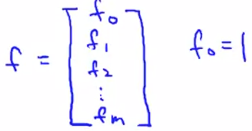 f = [f₀ f₁ f₂ ⋮ fₘ] f₀ = 1